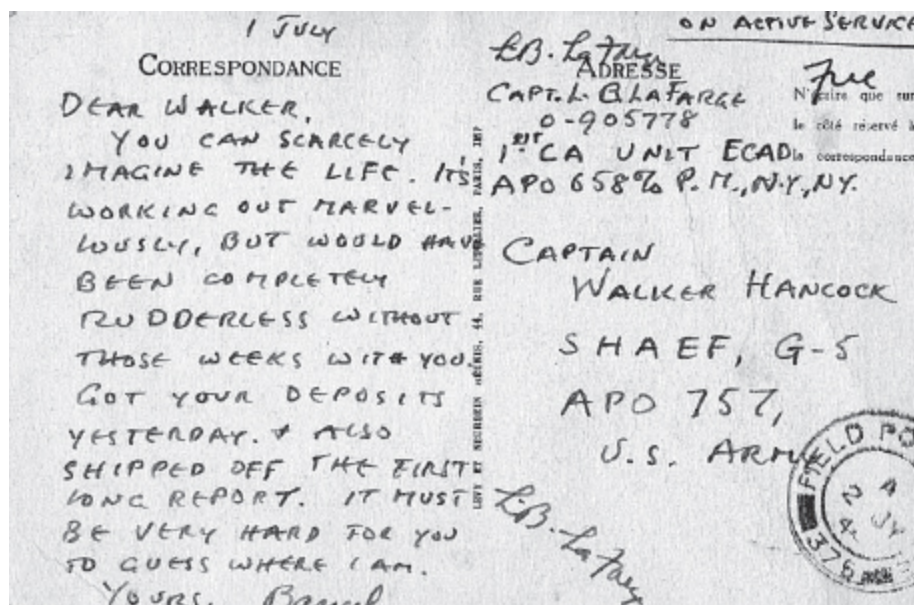 1 JULY
CORRESPONDANCE
DEAR WALKER,
YOU CAN SCARCELY
IMAGINE THE LIFE. IT'S
WORKING OUT MARVEL-
LOUSLY, BUT WOULD HAVE
BEEN COMPLETELY
RUDDERLESS WITHOUT
THOSE WEEKS WITH YOU.
GOT YOUR DEPOSITS
YESTERDAY. & ALSO
SHIPPED OFF THE FIRST
LONG REPORT. IT MUST
BE VERY HARD FOR YOU
TO GUESS WHERE I AM.
YOURS, Bancel
LEVY ET NEURDEIN RÉUNIS, 44, RUE LETELLIER, PARIS,
ON ACTIVE SERVICE
L.B. LaFarge
ADRESSE
Free
N'écrire que sur
le côté réservé à
la correspondance
CAPT. L. B. LAFARGE
0-905778
1ST CA UNIT ECAD
APO 658 % P.M., N.Y., N.Y.
CAPTAIN
WALKER HANCOCK
SHAEF, G-5
APO 757,
U.S. ARMY
L.B. LaFarge
FIELD PO
4
JY
376